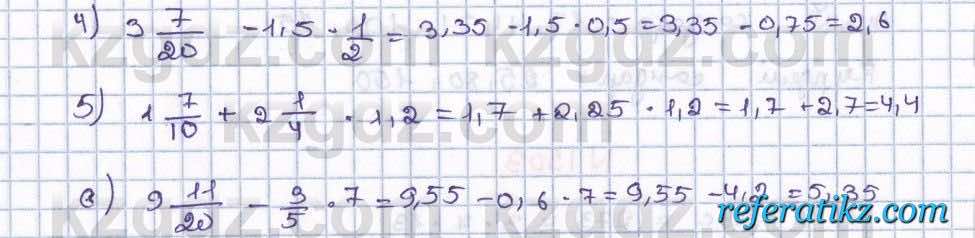 4) 3 7/20 - 1,5 · 1/2 = 3,35 - 1,5 · 0,5 = 3,35 - 0,75 = 2,6
5) 1 7/10 + 2 1/4 · 1,2 = 1,7 + 2,25 · 1,2 = 1,7 + 2,7 = 4,4
6) 9 11/20 - 3/5 · 7 = 9,55 - 0,6 · 7 = 9,55 - 4,2 = 5,35
referatikz.com